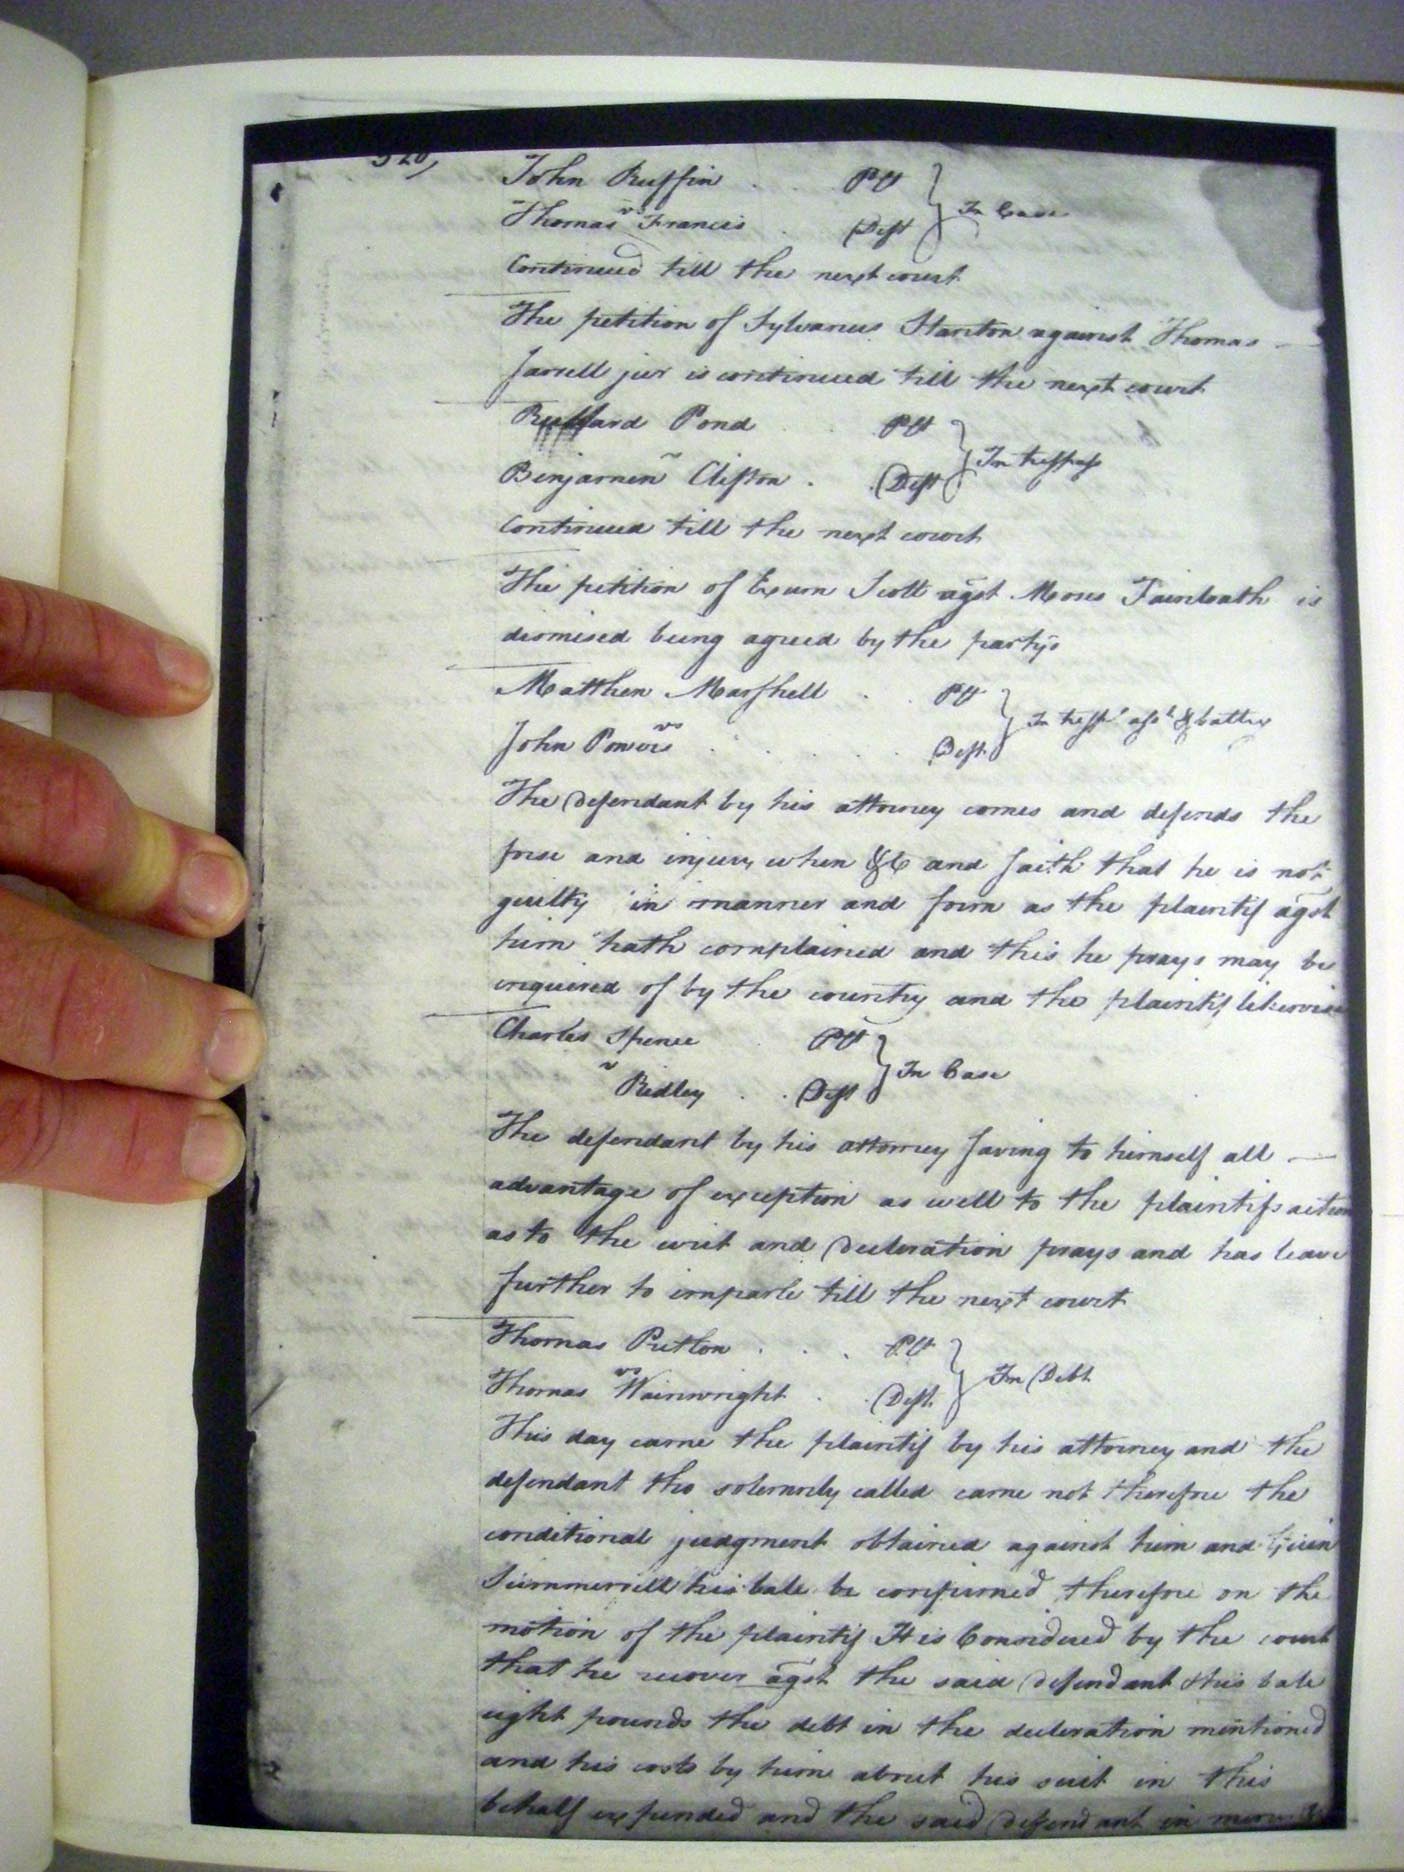 John Ruffin . . . Plt } In Case
Thomas vs Francis . Deft
Continued till the next court
The petition of Sylvanus Stanton against Thomas
Jarrell jur is continued till the next court
Pond . . Plt } In tresspass
Benjamin v Clifton . . Deft
Continued till the next court
The petition of Exum Scott agst Moses Faircloath is
dismised being agreed by the partys
Matthew Marshell . . Plt } In tressps asst & batterey
John Powers vs . . . . Deft
The Defendant by his attorney comes and defends the
forse and injury when &c and saith that he is not
guilty in manner and form as the plaintif agst
him hath complained and this he prays may be
inquired of by the country and the plaintif likewise
Charles Spence . Plt } In Case
v Ridley . . Deft
The defendant by his attorney saving to himself all
advantage of exception as well to the plaintifs action
as to the writ and Decleration prays and has leave
further to imparle till the next court
Thomas Pretlow . . . Plt } In Debt
Thomas vs Wainwright . . Deft
This day came the plaintif by his attorney and the
defendant tho solemnly called came not therefore the
conditional judgment obtained against him and
Summervell his bale be confirmed therefore on the
motion of the plaintif It is Considered by the court
that he recover agst the said Defendant & his bale
eight pounds the debt in the decleration mentioned
and his costs by him about his suit in this
behalf expended and the said Defendant in